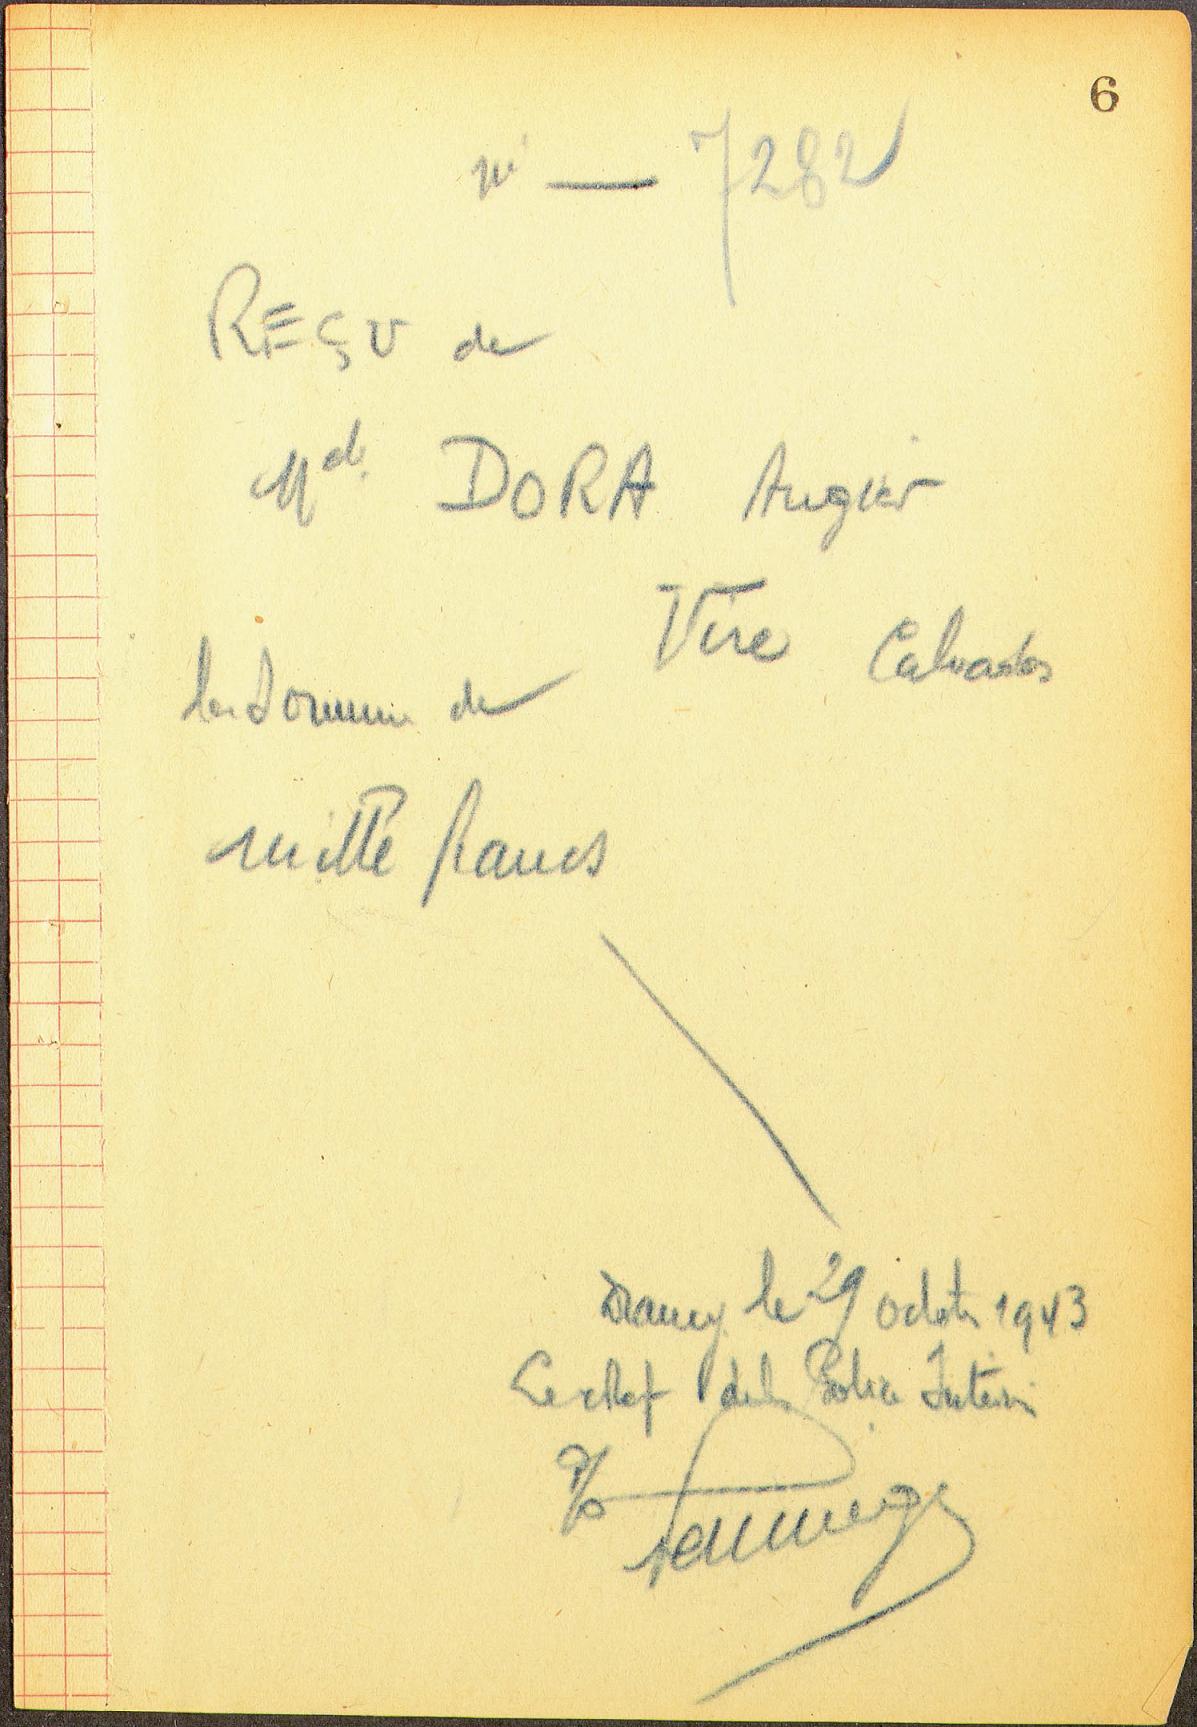 6
N° — 7282
REÇU de
Mde DORA Augier
Vire Calvados
la somme de
mille francs
Drancy le 29 octobre 1943
Le chef de la Police Intérieure
P/o